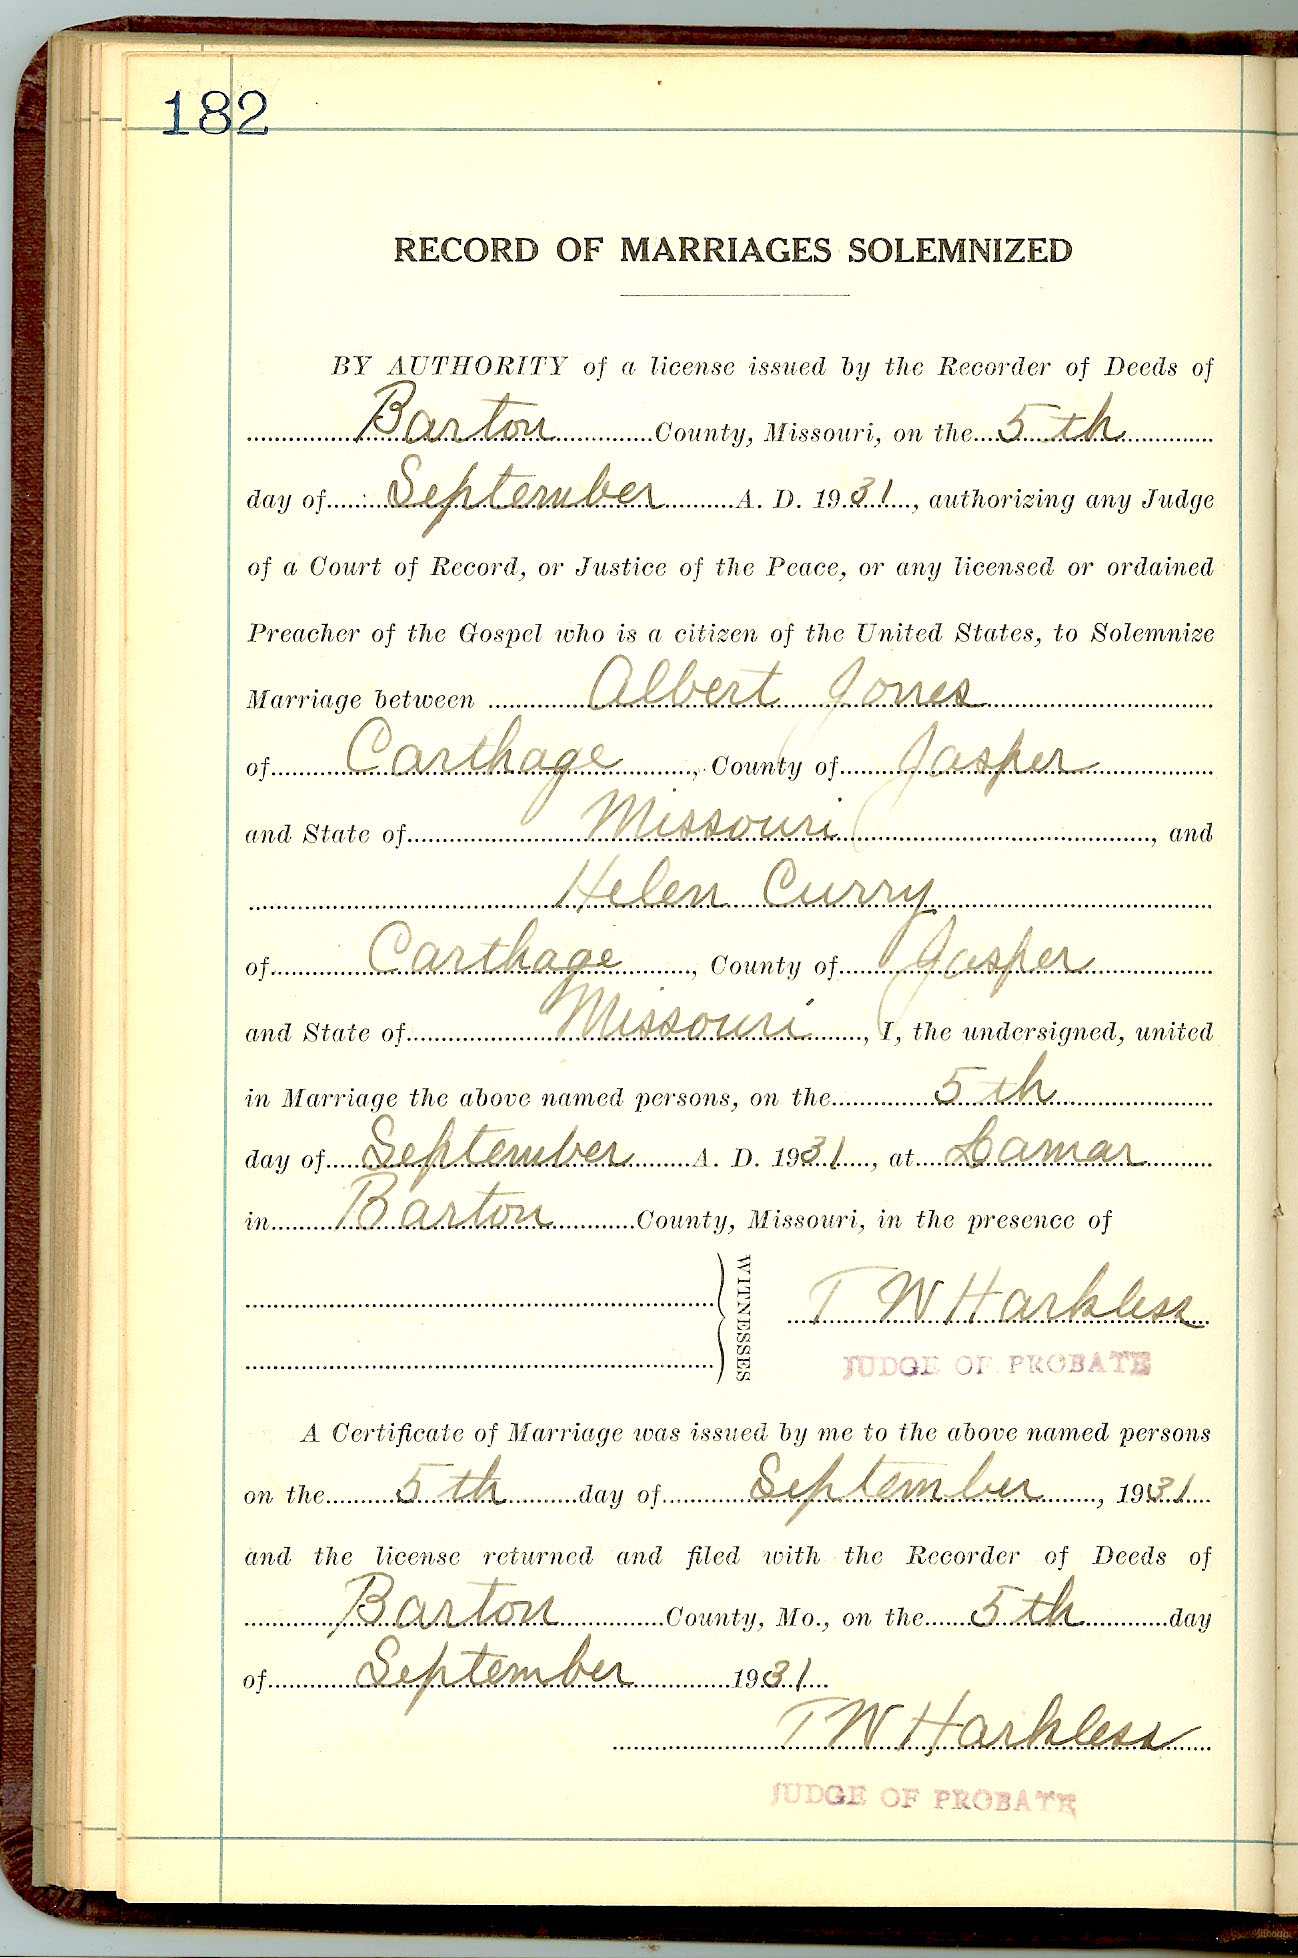 182
RECORD OF MARRIAGES SOLEMNIZED
BY AUTHORITY of a license issued by the Recorder of Deeds of
Barton County, Missouri, on the 5th
day of September A. D. 1931, authorizing any Judge
of a Court of Record, or Justice of the Peace, or any licensed or ordained
Preacher of the Gospel who is a citizen of the United States, to Solemnize
Marriage between Albert Jones
of Carthage, County of Jasper
and State of Missouri, and
Helen Curry
of Carthage, County of Jasper
and State of Missouri, I, the undersigned, united
in Marriage the above named persons, on the 5th
day of September A. D. 1931, at Lamar
in Barton County, Missouri, in the presence of
WITNESSES
T W Harkless
JUDGE OF PROBATE
A Certificate of Marriage was issued by me to the above named persons
on the 5th day of September, 1931
and the license returned and filed with the Recorder of Deeds of
Barton County, Mo., on the 5th day
of September 1931
T W Harkless
JUDGE OF PROBATE